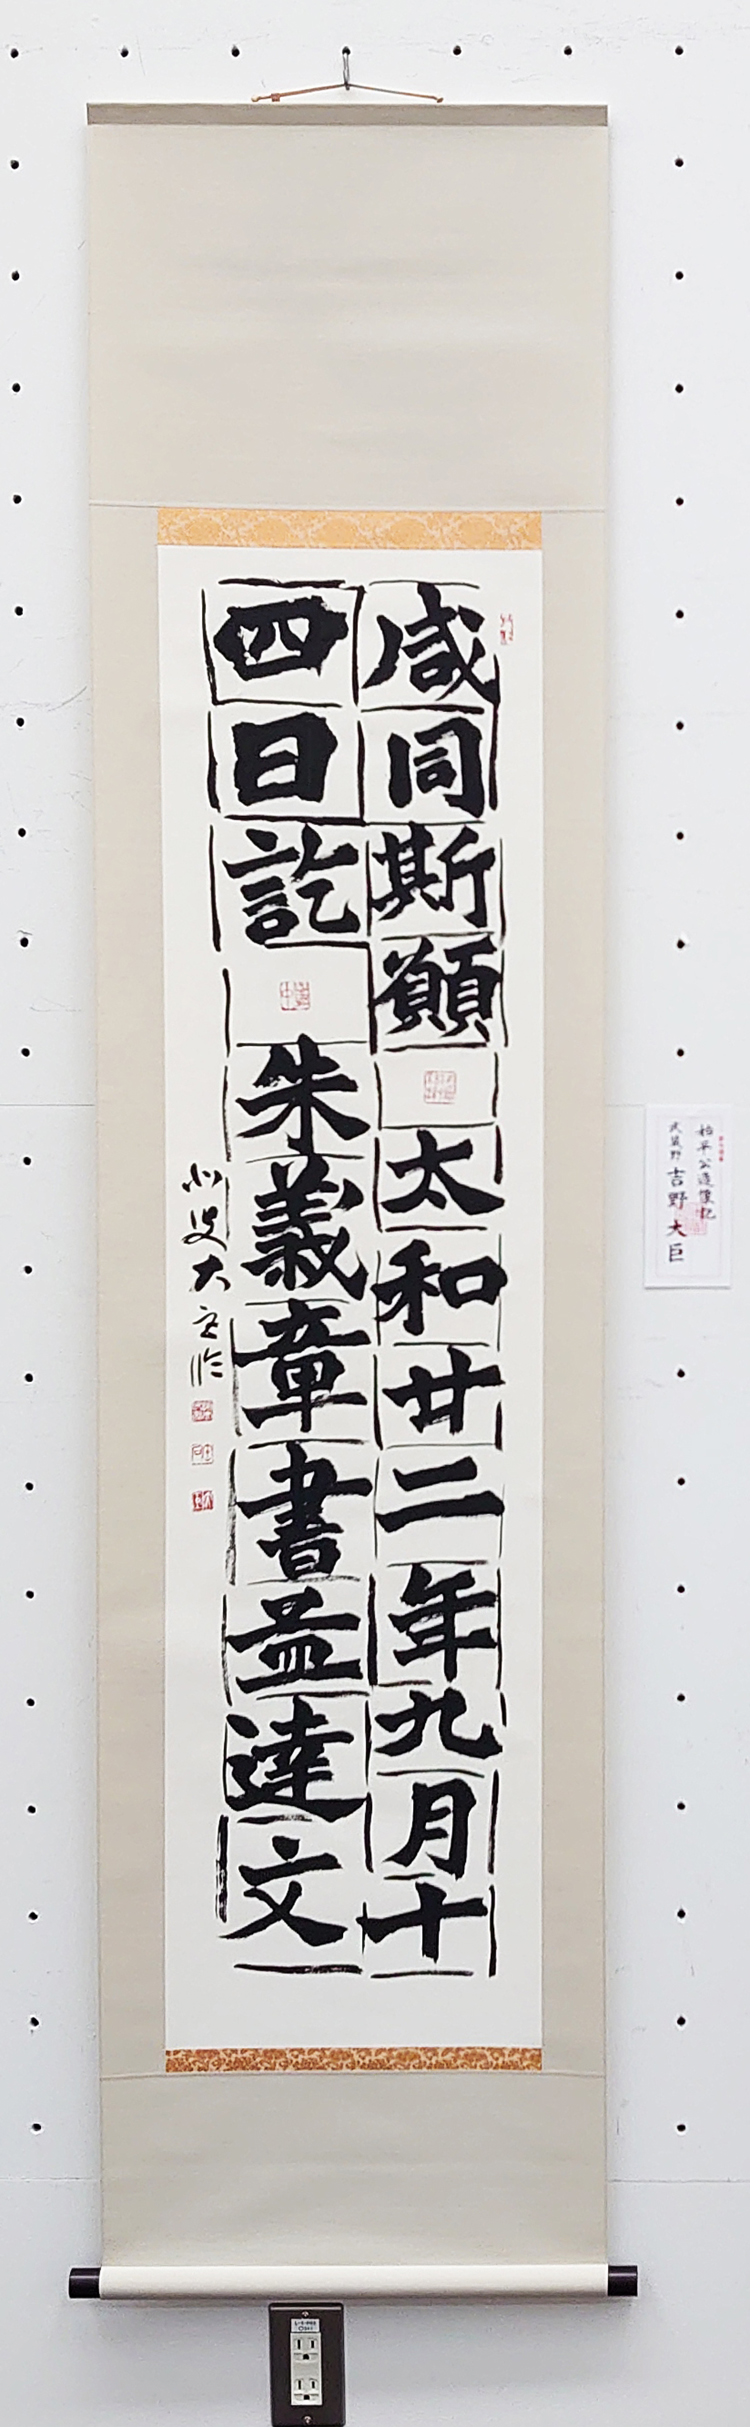 咸同斯願太和廿二年九月十
四日訖朱義章書孟達文
始平公造像記
武蔵野 吉野大巨